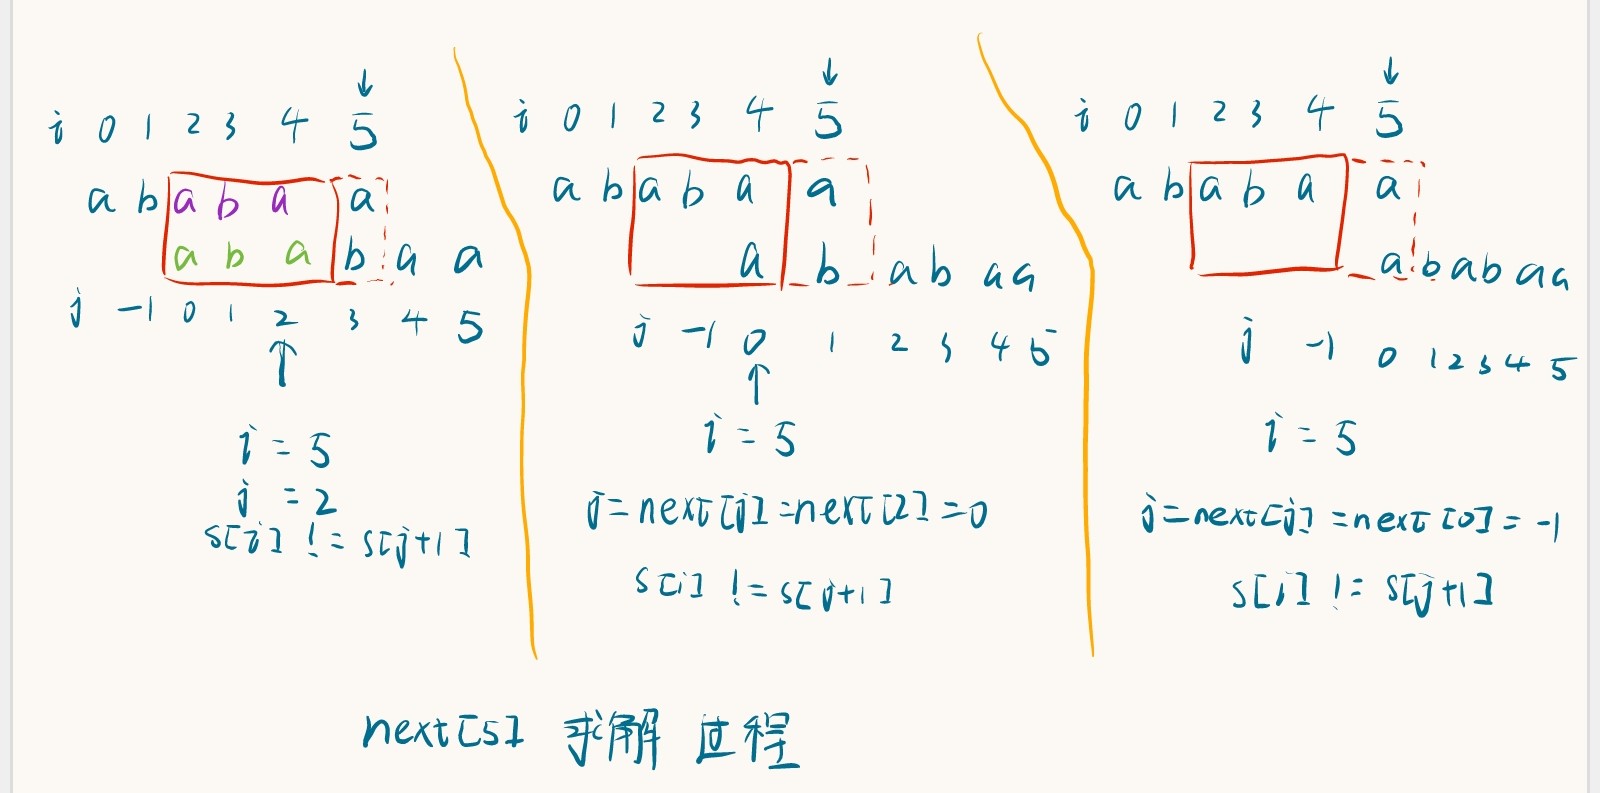 i 0 1 2 3 4 5
a b a b a a
a b a b a a
j -1 0 1 2 3 4 5
i = 5
j = 2
s[i] != s[j+1]
i 0 1 2 3 4 5
a b a b a a
a b a b a a
j -1 0 1 2 3 4 5
i = 5
j=next[j]=next[2]=0
s[i] != s[j+1]
i 0 1 2 3 4 5
a b a b a a
a b a b a a
j -1 0 1 2 3 4 5
i = 5
j=next[j]=next[0]=-1
s[i] != s[j+1]
next[5] 求解过程